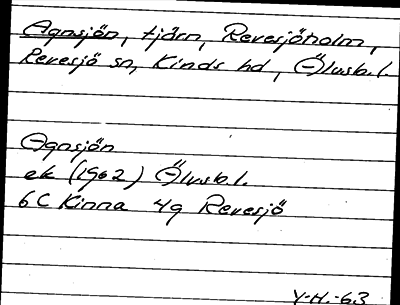 Agnsjön, tjärn, Revesjöholm,
Revesjö sn, Kinds hd, Älvsb. l.
Agnsjön
ek (1962) Älvsb. l.
6C Kinna 4g Revesjö
Y.H.-63